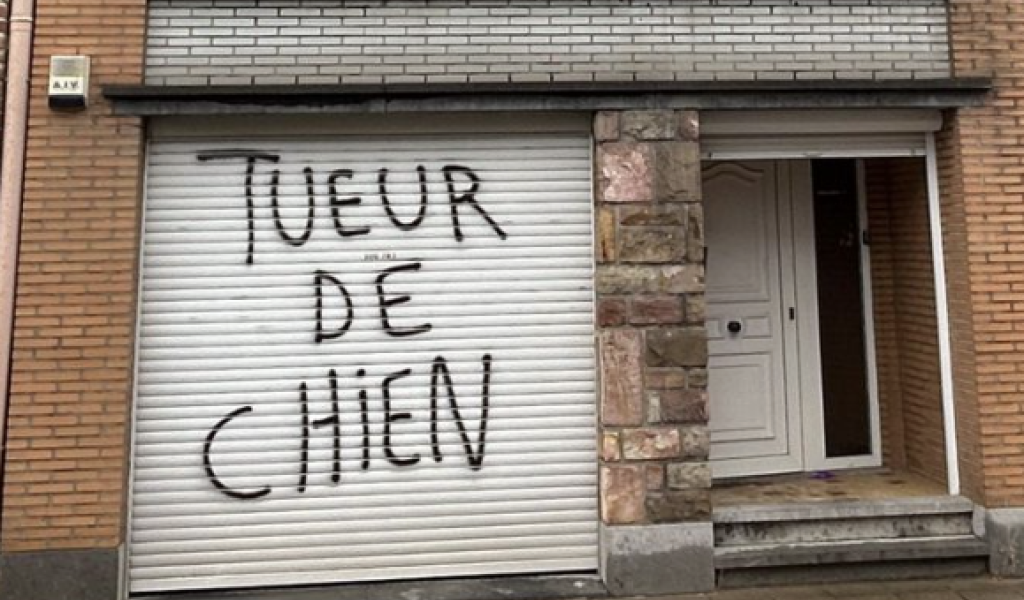 A.I.V.
TUEUR
DE
CHiEN